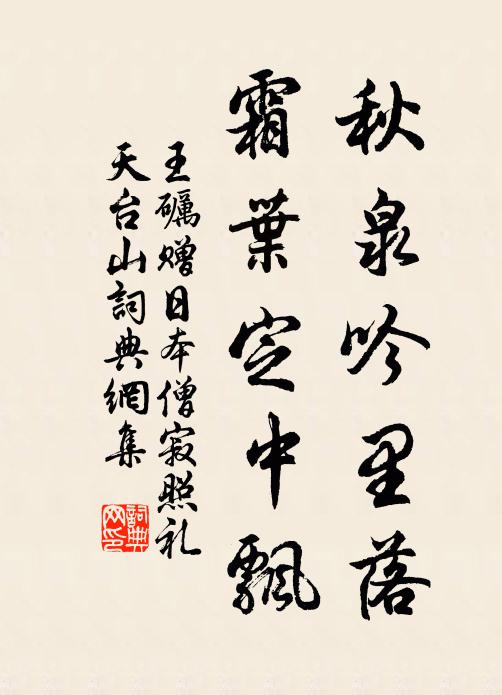 秋泉吟里落
霜葉定中飄
王礪贈日本僧寂照礼
天台山詞典網集
詞典网印